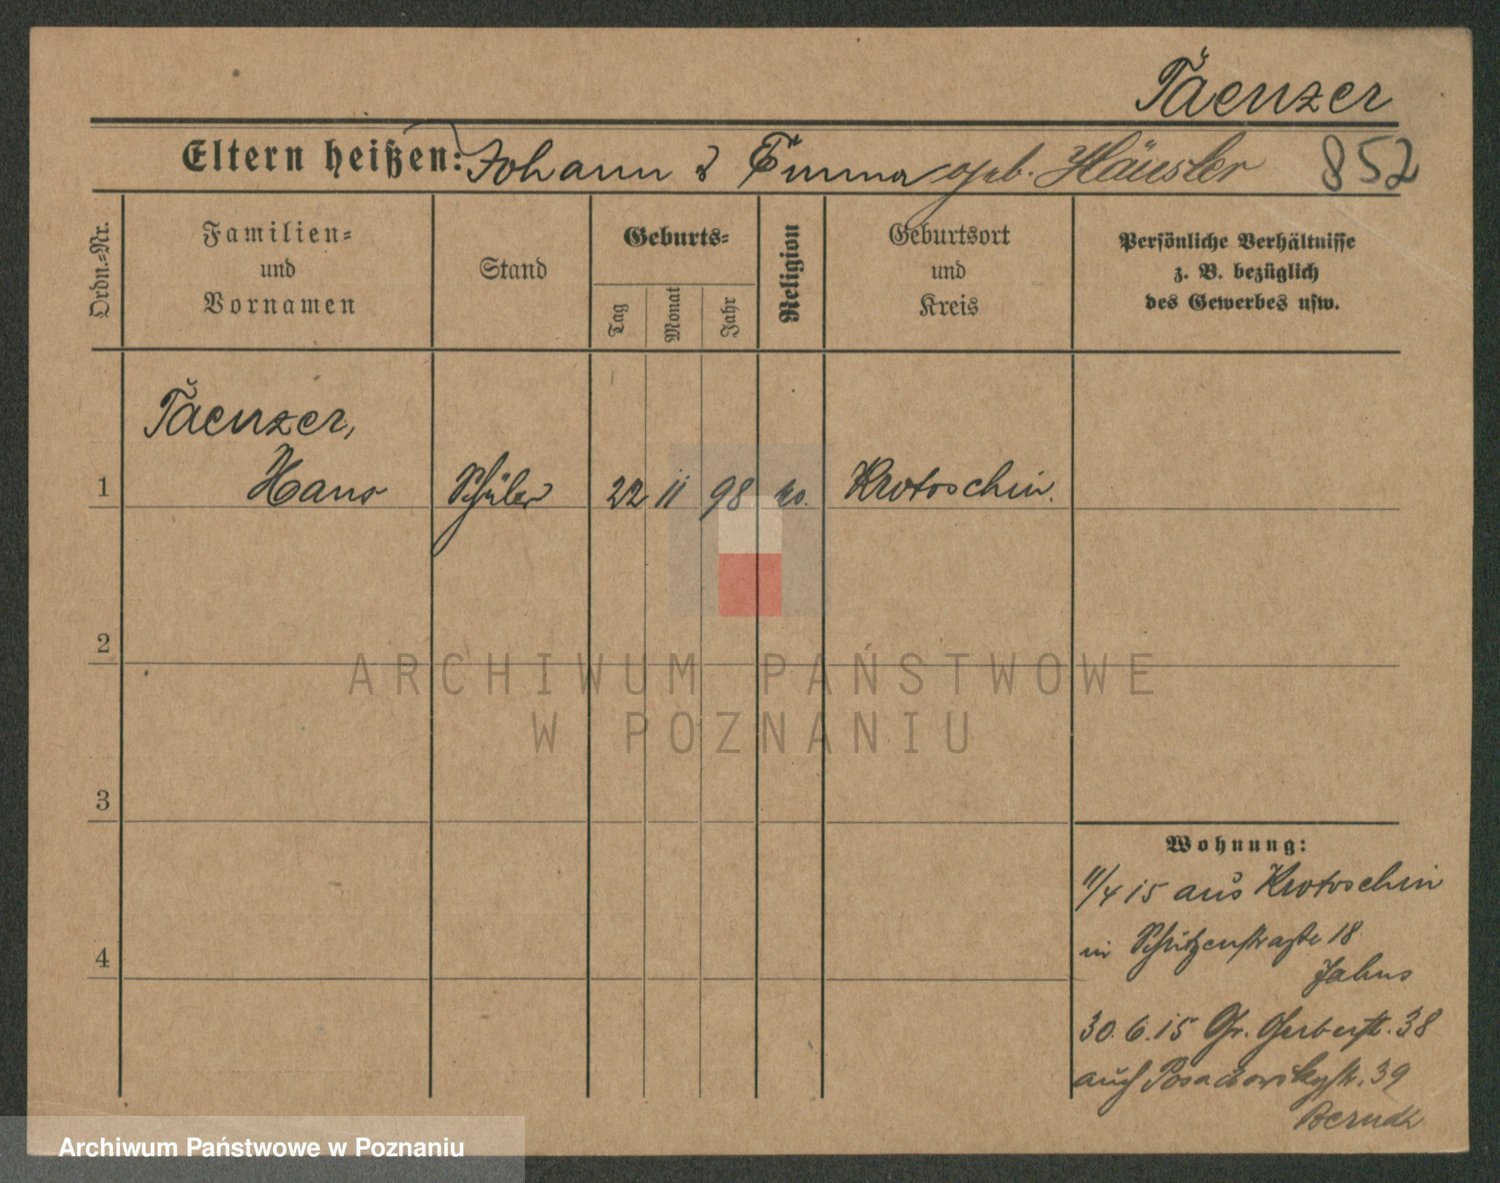 Taenzer
Eltern heißen: Johann & Emma geb. Häusler 852
Ordn.-Nr.
Familien-
und
Vornamen
Stand
Geburts-
Tag
Monat
Jahr
Religion
Geburtsort
und
Kreis
Persönliche Verhältnisse
z. B. bezüglich
des Gewerbes usw.
Taenzer,
1 Hans Schüler 22 11 98 Krotoschin.
2
3
4
Wohnung:
11/4 15 aus Krotoschin
in Schützenstraße 18
Jahns
30.6.15 Gr. Gerberstr. 38
auch Posadowskystr. 39
Berndt
ARCHIWUM PAŃSTWOWE
W POZNANIU
Archiwum Państwowe w Poznaniu